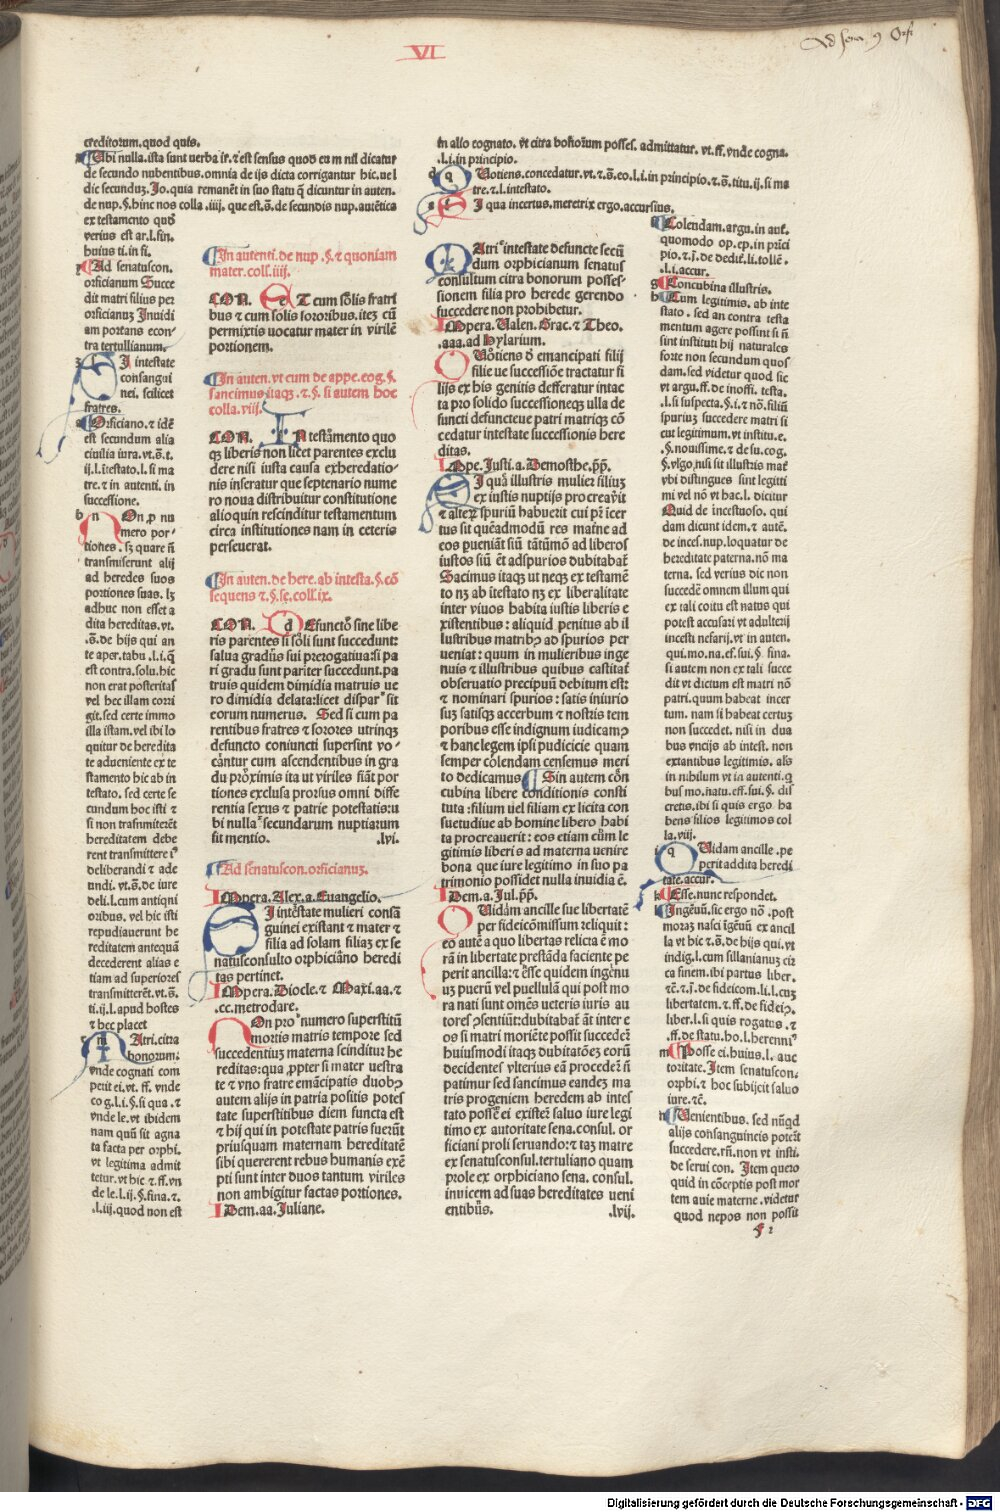 VI
creditorum. quod quis.
Ubi nulla. ista sunt uerba ir. ⁊ est sensus quod eum nil dicatur
de secundo nubentibus. omnia de ijs dicta corrigantur hic. uel
dic secunduz. Jo. quia remanēt in suo statu q̄ dicuntur in auten.
de nup. §. hinc nos colla. iiij. que est. s̄. de secundis nup. autētica
ex testamento quo
verius est ar. l. fin.
huius ti. in fi.
Ad senatuscon.
orficianum Succe
dit matri filius per
orficianuz Inuidi
am portans econ
tra tertullianum.
Si intestate
consangui
nei. scilicet
fratres.
Orficiano. ⁊ idē
est secundum alia
ciuilia iura. vt. s̄. t.
ij. l. ītestato. l. si ma
tre. ⁊ in autenti. in
successione.
Non p nu
mero por
tiones. sz quare n̄
transmiserunt alij
ad heredes suos
portiones suas. lz
adhuc non esset a
dita hereditas. vt.
s̄. de hijs qui an
te aper. tabu. l. i. q̄
est contra. solu. hic
non erat posteritas
vel hec illam corri
git. sed certe immo
illa istam. vel ibi lo
quitur de heredita
te adueniente ex te
stamento hic ab in
testato. sed certe se
cundum hoc isti ⁊
si non trāsmiterēt
hereditatem debe
rent transmittere i'
deliberandi ⁊ ade
undi. vt. s̄. de iure
deli. l. cum antiqui
oribus. vel hic isti
repudiauerunt he
reditatem antequā
decederent alias e
tiam ad superiores
transmitterēt. vt. s̄.
ti. ij. l. apud hostes
⁊ hec placet
Matri. citra
bonorum.
vnde cognati com
petit ei. vt. ff. vnde
cog. l. i. §. si qua. ⁊
vnde le. vt ibidem
nam quū sit agna
ta facta per orphi.
vt legitima admit
tetur. vt hic ⁊ ff. vn
de le. l. ij. §. fina. ⁊.
l. iij. quod non est
In autenti. de nup. §. ⁊ quoniam
mater. coll. iiij.
CON. Et cum solis fratri
bus ⁊ cum solis sororibus. itez cū
permixtis uocatur mater in virilē
portionem.
In auten. vt cum de appe. cog. §.
sancimus itaq3. ⁊. §. si autem hoc
colla. viij.
CON. In testamento quo
q3 liberis non licet parentes exclu
dere nisi iusta causa exheredatio
nis inseratur que septenario nume
ro noua distribuitur constitutione
alioquin rescinditur testamentum
circa institutiones nam in ceteris
perseuerat.
In auten. de here. ab intesta. §. cō
sequens ⁊. §. se. coll. ix.
CON. Defuncto sine libe
ris parentes si soli sunt succedunt:
salua gradus sui prerogatiua: si pa
ri gradu sunt pariter succedunt. pa
truis quidem dimidia matruis ue
ro dimidia delata: licet dispar' sit
eorum numerus. Sed si cum pa
rentibus fratres ⁊ sorores utrinq3
defuncto coniuncti supersint vo
cantur cum ascendentibus in gra
du pro'ximis ita ut viriles fiāt por
tiones exclusa prorsus omni diffe
rentia sexus ⁊ patrie potestatis: u
bi nulla' secundarum nuptiarum
sit mentio. .lvi.
Ad senatuscon. orficianuz.
Impera. Alex. a. Euangelio.
Si intestate mulieri consā
guinei existant ⁊ mater ⁊
filia ad solam filiaz ex se
natusconsulto orphiciano heredi
tas pertinet.
Impera. Diocle. ⁊ Maxi. aa. ⁊
.cc. metrodare.
Non pro' numero superstitū
mortis matris tempore sed
succedentiuz materna scinditur he
reditas: qua ppter si mater uestra
te ⁊ vno fratre emācipatis duob3
autem alijs in patria positis potes
tate superstitibus diem functa est
⁊ hij qui in potestate patris fuerūt
priusquam maternam hereditatē
sibi quererent rebus humanis exē
pti sunt inter duos tantum viriles
non ambigitur factas portiones.
Idem. aa. Juliane.
in alio cognato. vt citra bonorum posses. admittatur. vt. ff. vnde cogna.
.l. i. in principio.
Quotiens. concedatur. vt. ⁊. s̄. eo. l. i. in principio. ⁊. s̄. titu. ij. si ma
tre. ⁊. l. intestato.
Si qua incertus. meretrix ergo. accursius.
Matri' intestate defuncte secū
dum orphicianum senatus
consultum citra bonorum posses
sionem filia pro herede gerendo
succedere non prohibetur.
Impera. Valen. Grac. ⁊ Theo.
.aaa. ad Hylarium.
Quotiens d̄ emancipati filij
filie ue successiōe tractatur fi
lijs ex his genitis defferatur intac
ta pro solido successioneq3 ulla de
functi defuncteue patri matriq3 cō
cedatur intestate successionis here
ditas.
Impe. Justi. a. Demosthe. p̄p̄.
Si qua illustris mulier filiuz
ex iustis nuptijs procreauit
⁊ alterz spuriū habuerit cui pr̄ icer
tus sit quēadmodū res matne ad
eos pueniāt siū tātūmō ad liberos
iustos siū ēt adspurios dubitabat̄
Sacimus itaq3 ut neq3 ex testamē
to nz ab ītestato nz ex liberalitate
inter viuos habita iustis liberis e
xistentibus: aliquid penitus ab il
lustribus matrib3 ad spurios per
ueniat: quum in mulieribus inge
nuis ⁊ illustribus quibus castitat̄
obseruatio precipuū debitum est:
⁊ nominari spurios: satis iniurio
suz satisq3 accerbum ⁊ nostris tem
poribus esse indignum iudicam3
⁊ hanc legem ipsi pudicicie quam
semper colendam censemus meri
to dedicamus Sin autem con
cubina libere conditionis consti
tuta: filium uel filiam ex licita con
suetudine ab homine libero habi
ta procreauerit: eos etiam cum le
gitimis liberis ad materna uenire
bona que iure legitimo in suo pa
trimonio possidet nulla inuidia ē.
Idem. a. Jul. p̄p̄.
Quidam ancille sue libertatē
per fideicōmissum reliquit:
eo autē a quo libertas relicta ē mo
rā in libertate prestāda faciente pe
perit ancilla: ⁊ esse quidem ingenu
uz puerū vel puellulā qui post mo
ra nati sunt omēs ueteris iuris au
tores psentiūt: dubitabat̄ āt inter e
os si matri moriēte possit succeder̄
huiusmodi itaq3 dubitatōez eorū
decidentes ulterius eā proceder̄ n̄
patimur sed sancimus eandez ma
tris progeniem heredem ab intes
tato posse ei exister̄ saluo iure legi
timo ex autoritate sena. consul. or
ficiani proli seruando: ⁊ taz matre
ex senatusconsul. tertuliano quam
prole ex orphiciano sena. consul.
inuicem ad suas hereditates ueni
entibus. .lvij.
Colendam. argu. in aut.
quomodo op. ep. in prici
pio. ⁊. j. de dedit. li. tollē.
.l. i. accur.
Concubina illustris.
Cum legitimis. ab inte
stato. sed an contra testa
mentum agere possint si n̄
sint instituti hij naturales
forte non secundum quos
dam. sed videtur quod sic
vt argu. ff. de inoffi. testa.
.l. si suspecta. §. i. ⁊ nō. filiū
spuriuz succedere matri si
cut legitimum. vt institu. e.
§. nouissime. ⁊ de su. cog.
§. vlgo. nisi sit illustris mat̄
vbi distingues sunt legitti
mi vel nō vt hac. l. dicitur
Quid de incestuoso. qui
dam dicunt idem. ⁊ autē.
de inces. nup. loquatur de
hereditate paterna. nō ma
terna. sed verius dic non
succedē omnem illum qui
ex tali coitu est natus qui
potest accusari vt adulterij
incesti nefarij. vt in auten.
qui. mo. na. ef. sui. §. fina.
si autem non ex tali succe
dit vt dictum est matri nō
patri. quum habeat incer
tum. nam si habeat certuz
non succedet. nisi in dua
bus vncijs ab intest. non
extantibus legitimis. alīs
in nihilum vt in autenti. q
bus mo. natu. eff. sui. §. dis
cretis. ibi si quis ergo. ha
bens filios legitimos col
la. viij.
Quidam ancille. pe
perit addita heredi
tate. accur.
Esse. nunc respondet.
Ingēuū. sic ergo nō. post
moraz nasci īgēuū ex ancil
la vt hic ⁊. s̄. de hijs qui. vt
indig. l. cum sillanianuz cir
ca finem. ibi partus liber.
⁊c. ⁊. j. de fideicom. li. l. cuz
libertatem. ⁊. ff. de fideic.
liber. l. si quis rogatus. ⁊
.ff. de statu. ho. l. herenni'
Posse ei. huius. l. auc
toritate. Item senatuscon.
orphi. ⁊ hoc subijcit saluo
iure. ⁊c.
Uenientibus. sed nūqd
alijs consanguineis potest
succedere. rn̄. non vt insti.
de serui con. Item quero
quid in cōceptis post mor
tem auie materne. videtur
quod nepos non possit
f 2
Digitalisierung gefördert durch die Deutsche Forschungsgemeinschaft - DFG